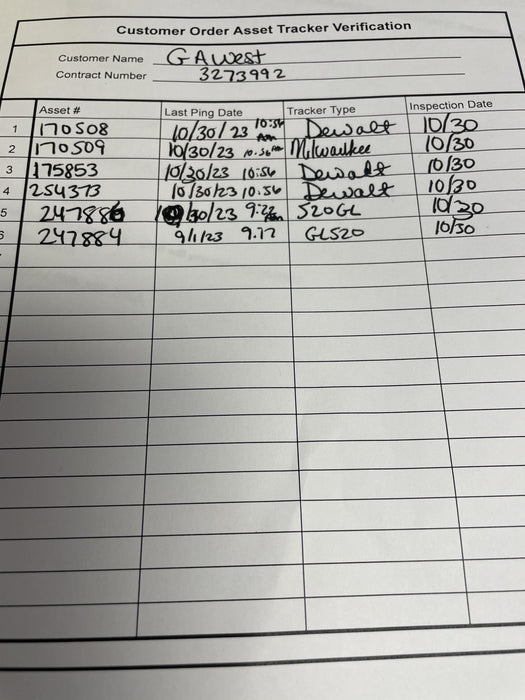 Customer Order Asset Tracker Verification
Customer Name GAWest
Contract Number 3273992
Asset # Last Ping Date Tracker Type Inspection Date
1 170508 10/30/23 10:56 Am Dewalt 10/30
2 170509 10/30/23 10.56 Am Milwaukee 10/30
3 175853 10/30/23 10:56 Dewalt 10/30
4 254373 10/30/23 10.56 Dewalt 10/30
5 247886 10/30/23 Am 520GL 10/30
247884 9/1/23 9:17 GL520 10/30